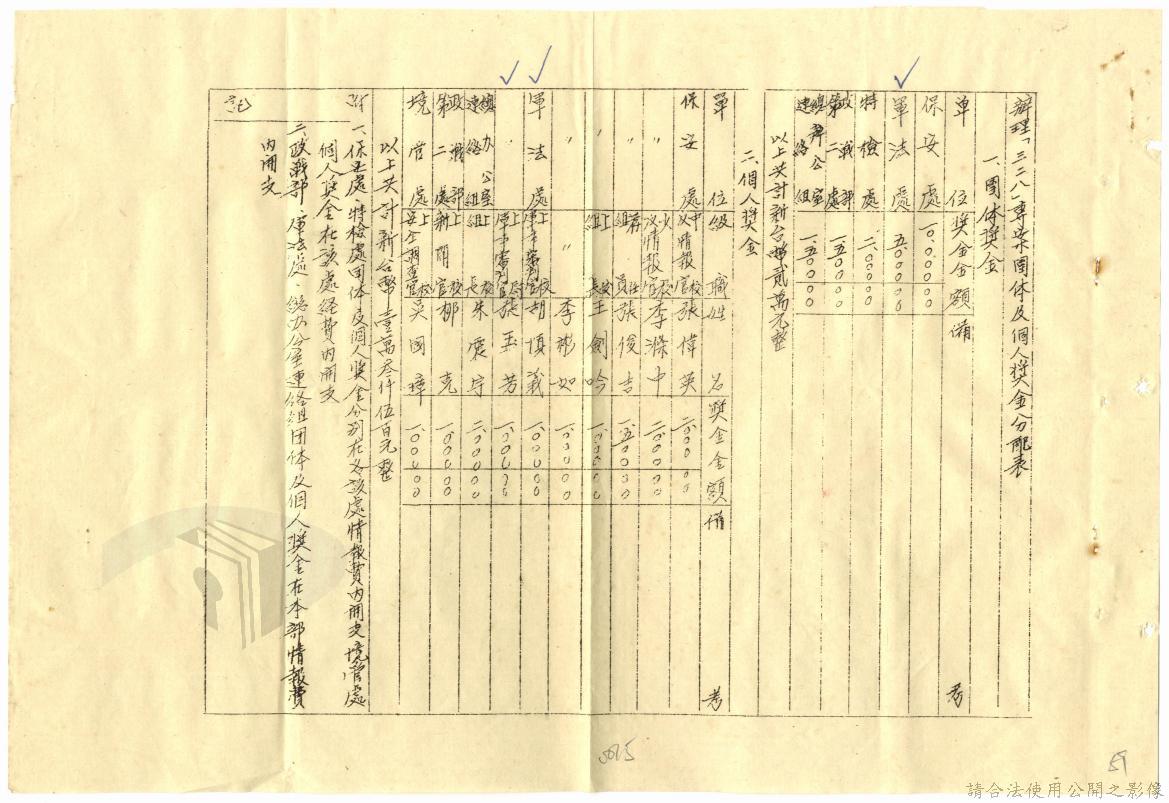 辦理「三三八八」專案團体及個人獎金分配表
一、團体獎金
單位 獎金金額 備考
保安處 一〇、〇〇〇 〇〇
軍法處 五、〇〇〇 〇〇
特檢處 二、〇〇〇 〇〇
政戰部第二處 一、五〇〇 〇〇
總辦公室連絡組 一、五〇〇 〇〇
以上共計新台幣貳萬元整
二、個人獎金
單位 級職 姓名 獎金金額 備考
保安處 中校 情報官 張偉英 二、〇〇〇 〇〇
〃 少校情報官 李滌中 二、〇〇〇 〇〇
〃 薦任組員 張俊吉 一、五〇〇 〇〇
〃 上校組長 王劍吟 一、〇〇〇 〇〇
〃 〃 李彬如 一、〇〇〇 〇〇
軍法處 上校軍事審判官 胡慎義 一、〇〇〇 〇〇
〃 上尉軍事審判官 張玉芳 一、〇〇〇 〇〇
總辦公室連絡組 上校組長 朱震宇 二、〇〇〇 〇〇
政戰部第二處 上校新聞官 柳克 一、〇〇〇 〇〇
境管處 上校安全調查官 吳國璋 一、〇〇〇 〇〇
以上共計新台幣壹萬叁仟伍百元整
附記
一、保安處、特檢處團体及個人獎金分別在各該處情報費內開支境管處
個人獎金在該處經費內開支
二、政戰部、軍法處、總辦公室連絡組团体及個人獎金在本部情報費
內開支
5015
59
請合法使用公開之影像